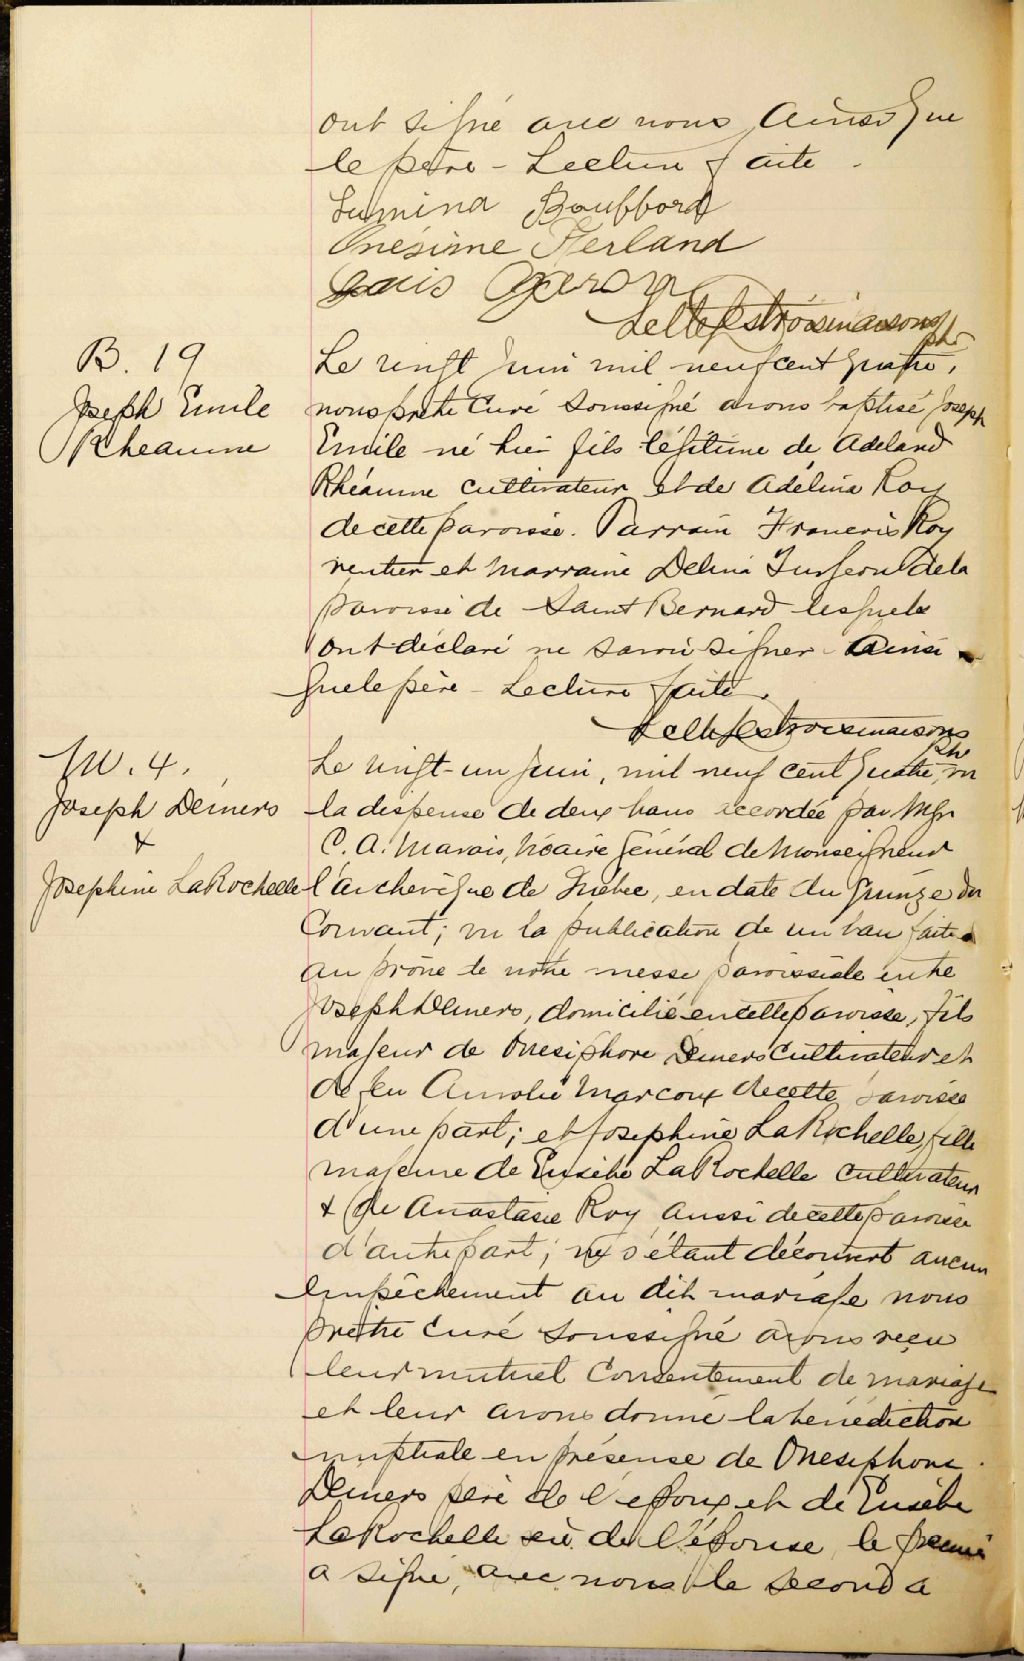 ont signé avec nous Ainsi que
le père - Lecture faite -
Lumina Boufford
Onésime Ferland
Louis
Lellis Destroismaisons
ptr
B. 19
Joseph Emile
Rheaume
Le vingt juin mil neuf cent quatre,
nous prêtre Curé soussigné avons baptisé Joseph
Emile né hier fils légitime de Adelard
Rhéaume cultivateur et de Adélina Roy
de cette paroisse. Parrain Francois Roy
rentier et Marraine Delina Turgeon de la
paroisse de Saint Bernard lesquels
ont déclaré ne savoir signer Ainsi
que le père - Lecture faite.
Lellis Destroismaisons
Ptr
M. 4.
Joseph Demers
&
Josephine LaRochelle
Le vingt-un juin, mil neuf cent quatre, vu
la dispense de deux bans accordée par Mgr
C. A. Marois, Vicaire général de Monseigneur
l'archevêque de Québec, en date du quinze du
Courant; vu la publication de un ban faite
au prône de notre messe paroissiale entre
Joseph Demers, domicilié en cette paroisse, fils
majeur de Onesiphore Demers Cultivateur et
de feu Aurelie Marcoux de cette paroisse
d'une part; et Josephine LaRochelle, fille
majeure de Eusèbe LaRochelle cultivateur
& de Anastasie Roy aussi de cette paroisse
d'autre part; ne s'étant découvert aucun
empêchement au dit mariage nous
prêtre Curé soussigné avons reçu
leur mutuel Consentement de mariage
et leur avons donné la bénédiction
nuptiale en présense de Onesiphore
Demers père de l'époux et de Eusèbe
LaRochelle de l'épouse le premier
a signé, avec nous le second a